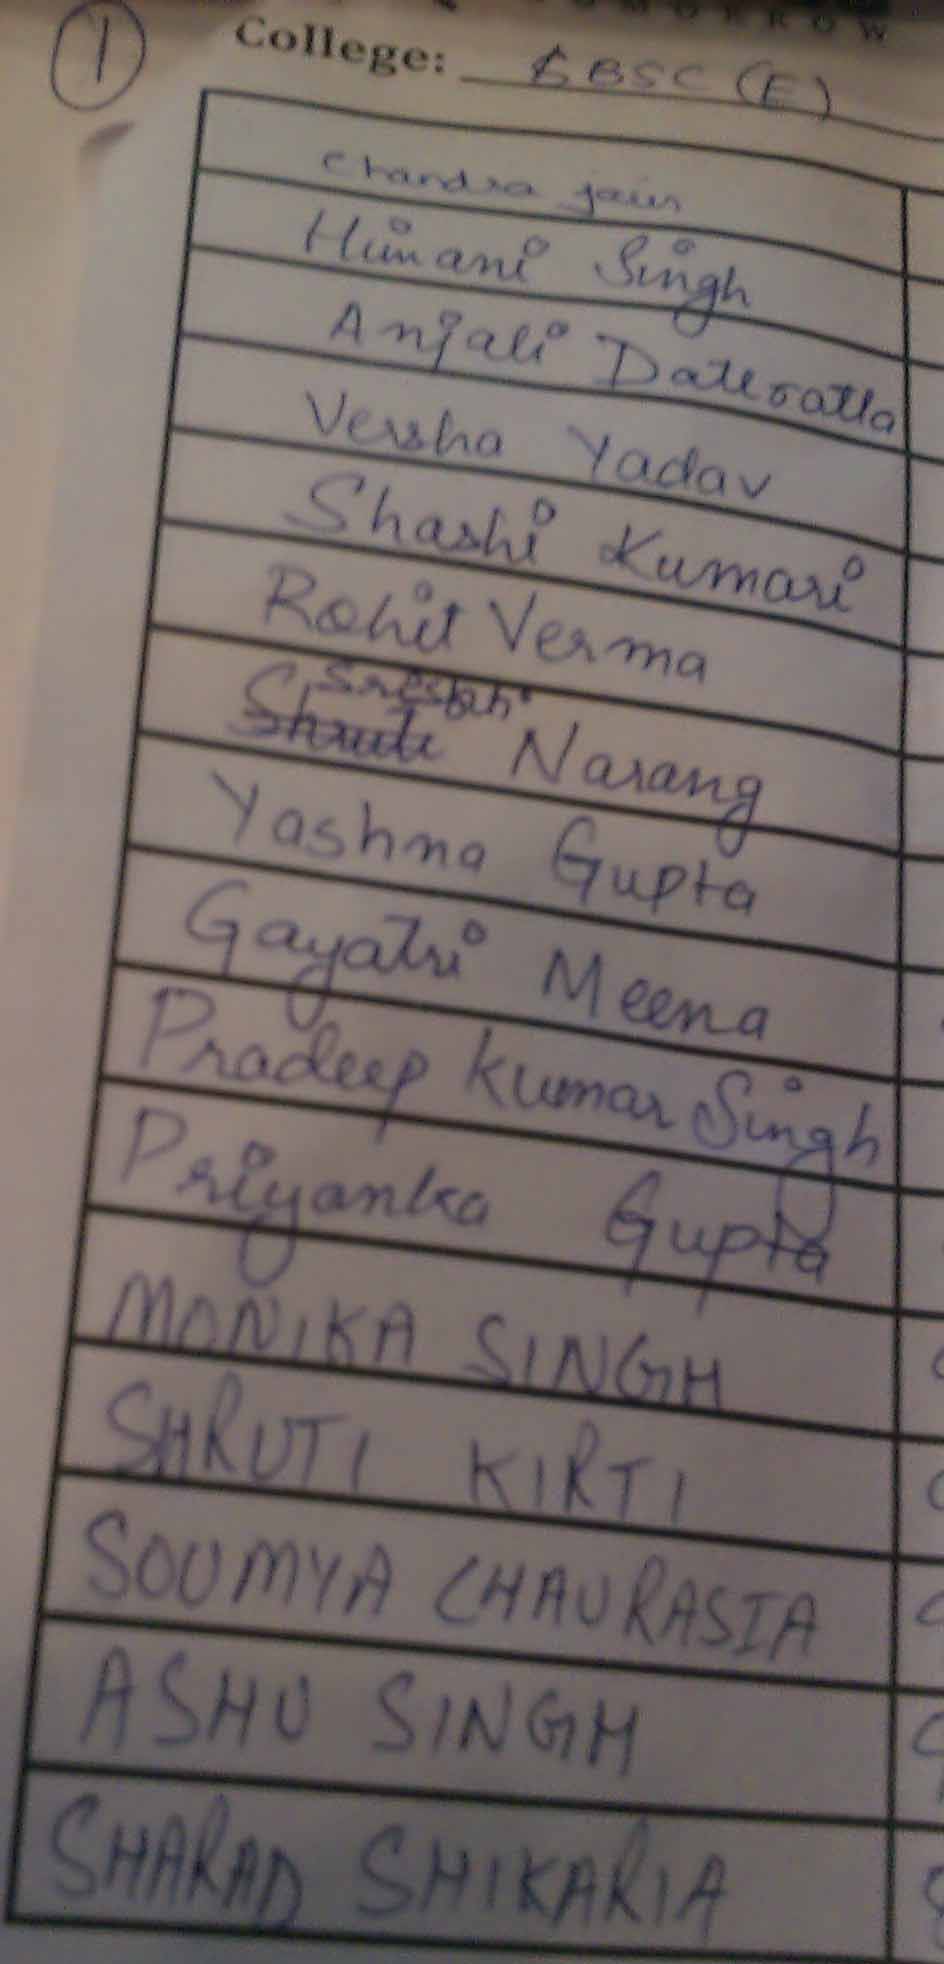 1
College: SBSC (E)
Chandra jain
Himani Singh
Anjali
Versha Yadav
Shashi Kumari
Rohit Verma
Narang
Yashna Gupta
Gayatri Meena
Pradeep Kumar Singh
Priyanka Gupta
MONIKA SINGH
SHRUTI KIRTI
SOUMYA CHAURASIA
ASHU SINGH
SHARAD SHIKARIA